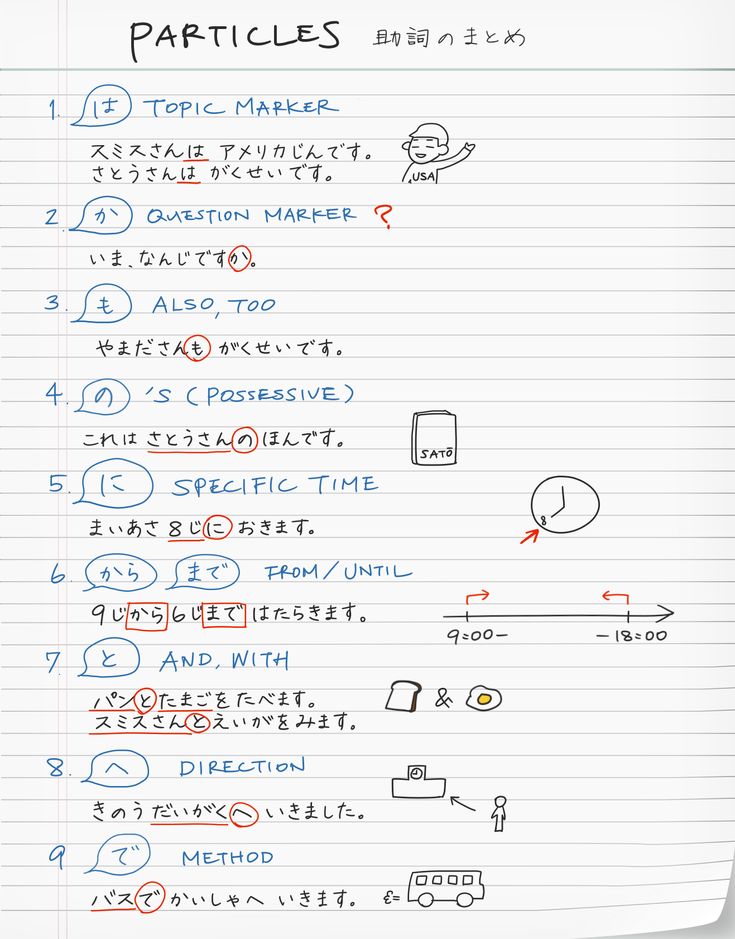 PARTICLES 助詞のまとめ
1. は TOPIC MARKER
スミスさんは アメリカじんです。
さとうさんは がくせいです。
USA
2. か QUESTION MARKER ?
いま、なんじですか。
3. も ALSO, TOO
やまださんも がくせいです。
4. の 'S (POSSESSIVE)
これは さとうさんの ほんです。
SATŌ
5. に SPECIFIC TIME
まいあさ 8じに おきます。
8
6. から まで FROM/UNTIL
9じから6じまで はたらきます。
9:00- -18:00
7. と AND, WITH
パンとたまごをたべます。
&
スミスさんとえいがをみます。
8. へ DIRECTION
きのう だいがくへ いきました。
9 で METHOD
バスで かいしゃへ いきます。